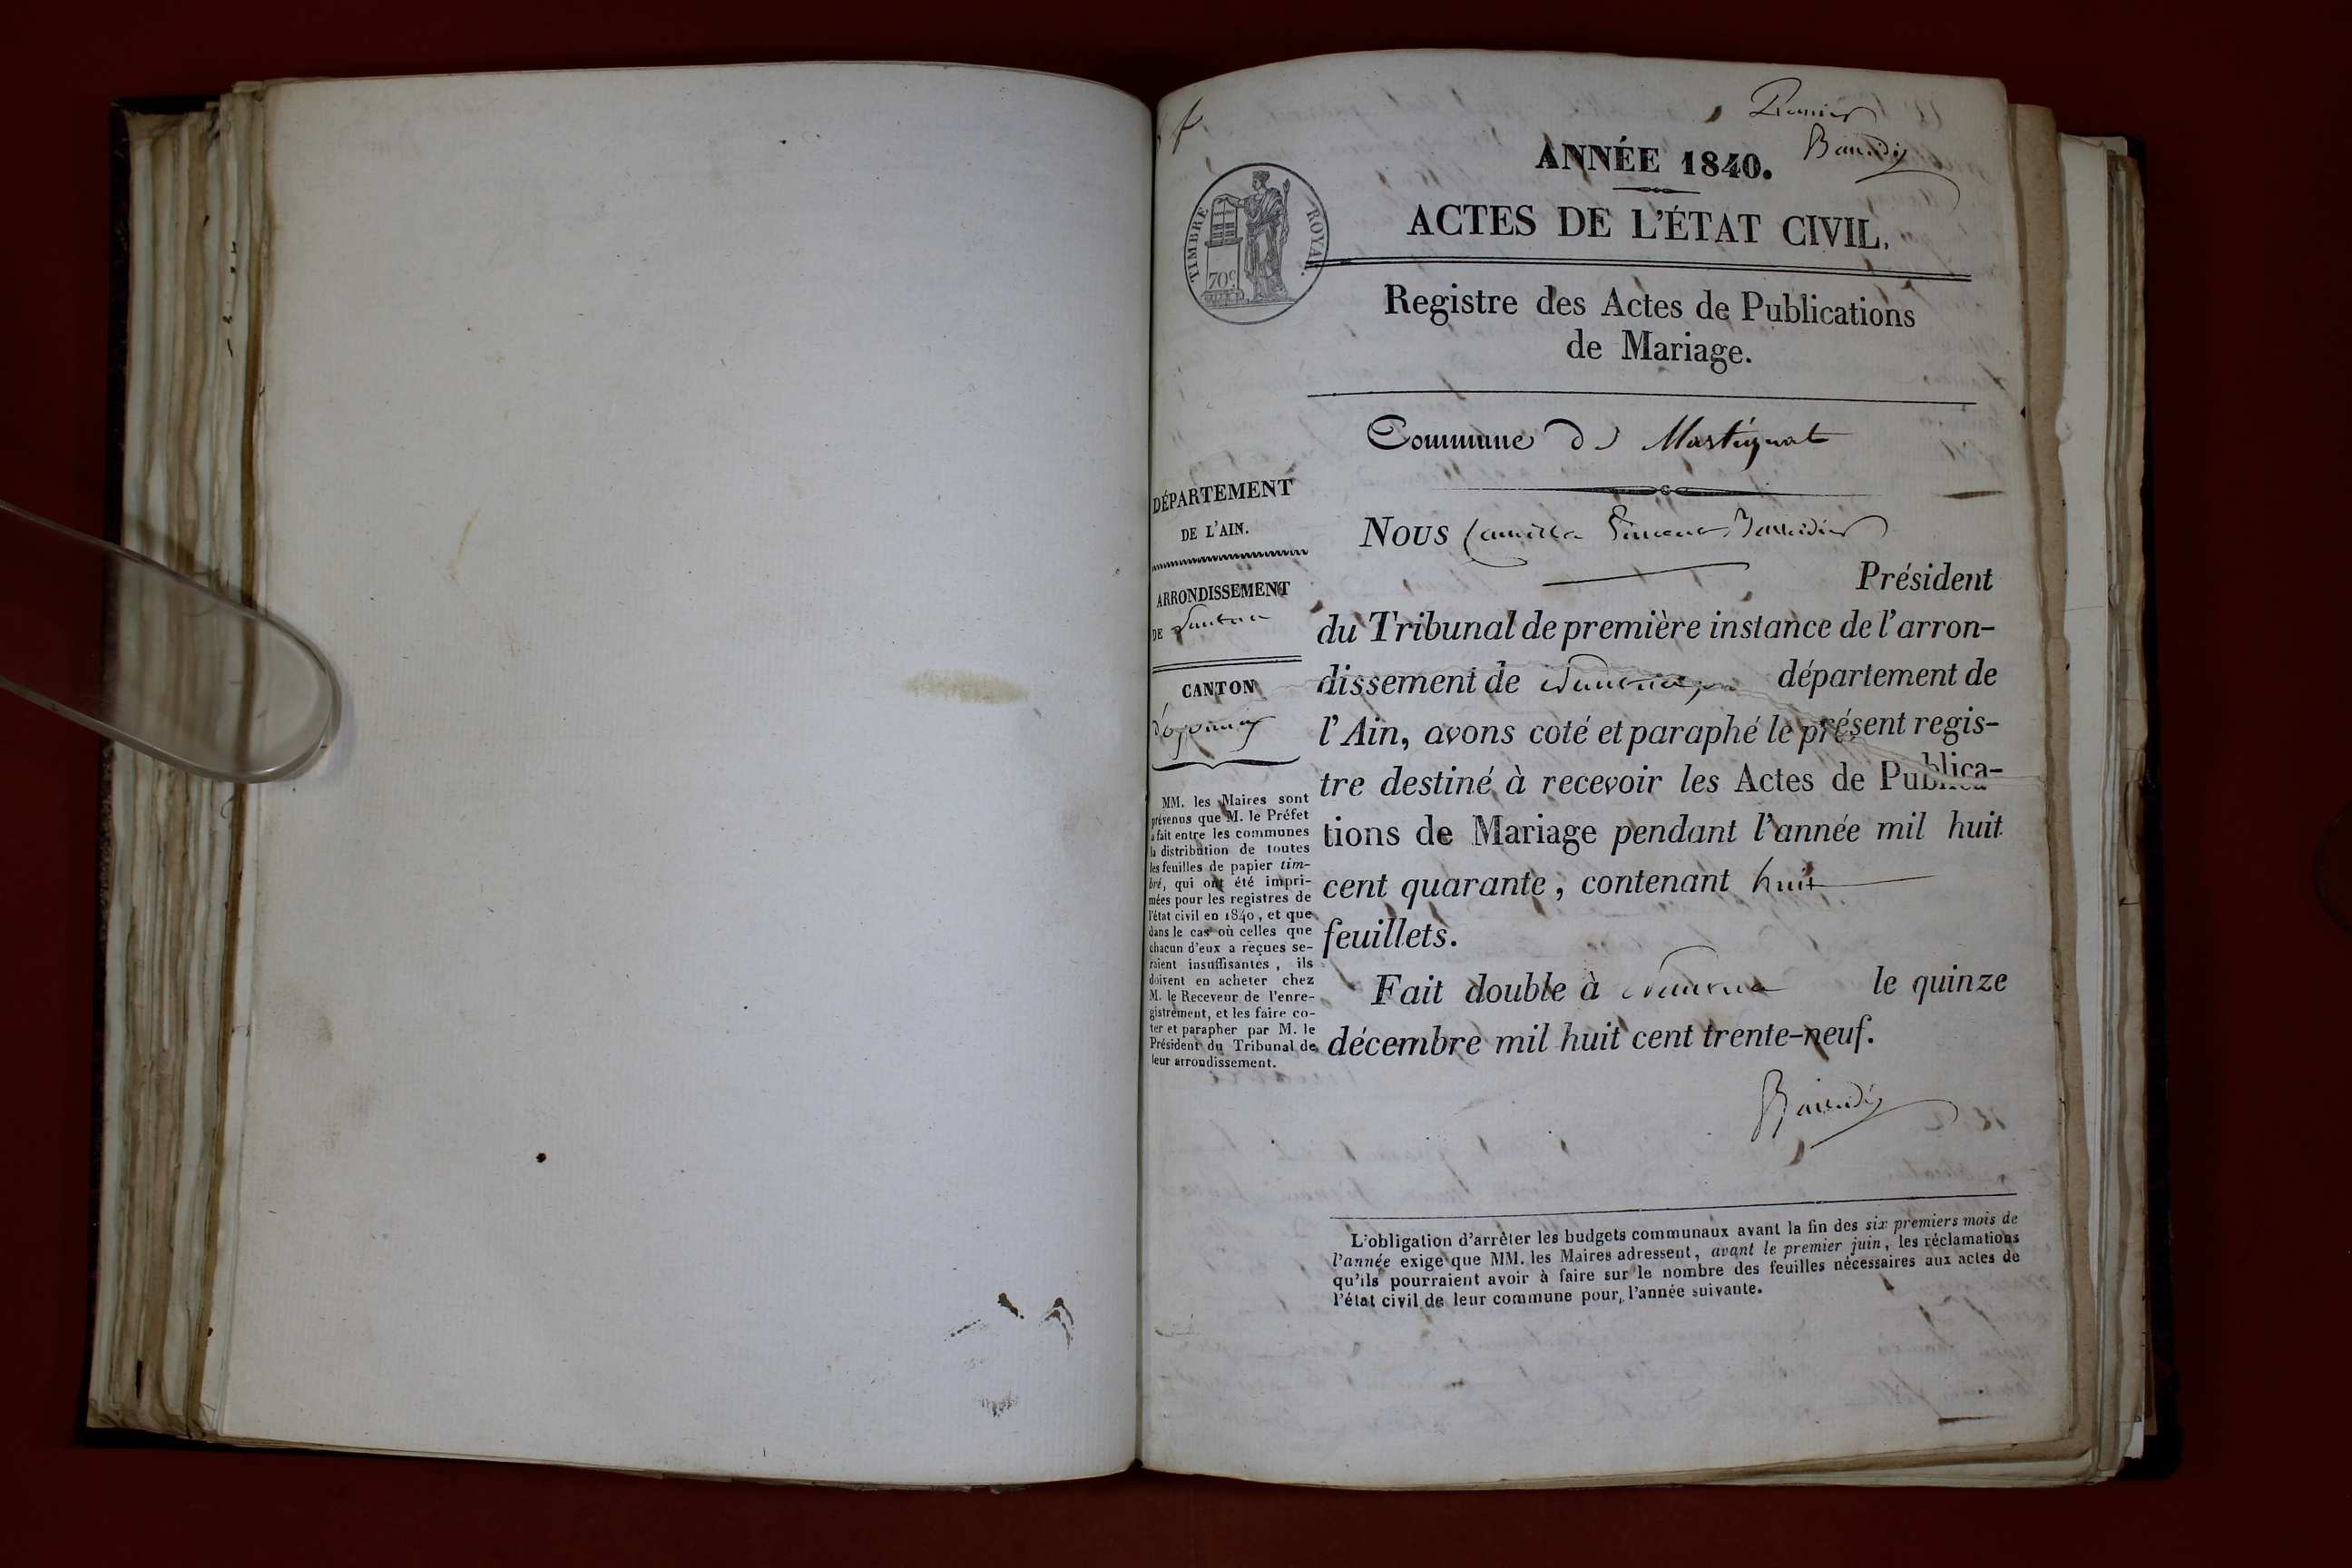 Premier
Baudin
ANNÉE 1840.
TIMBRE ROYAL.
70c
ACTES DE L'ÉTAT CIVIL.
Registre des Actes de Publications
de Mariage.
Commune de Martignat
DÉPARTEMENT
DE L'AIN.
ARRONDISSEMENT
DE Nantua
CANTON
d'oyonnax
MM. les Maires sont
prévenus que M. le Préfet
a fait entre les communes
la distribution de toutes
les feuilles de papier tim-
bré, qui ont été impri-
mées pour les registres de
l'état civil en 1840, et que
dans le cas où celles que
chacun d'eux a reçues se-
raient insuffisantes, ils
doivent en acheter chez
M. le Receveur de l'enre-
gistrement, et les faire co-
ter et parapher par M. le
Président du Tribunal de
leur arrondissement.
Nous Camille
Président
du Tribunal de première instance de l'arron-
dissement de Nantua département de
l'Ain, avons coté et paraphé le présent regis-
tre destiné à recevoir les Actes de Publica-
tions de Mariage pendant l'année mil huit
cent quarante, contenant huit
feuillets.
Fait double à Nantua le quinze
décembre mil huit cent trente-neuf.
L'obligation d'arrêter les budgets communaux avant la fin des six premiers mois de
l'année exige que MM. les Maires adressent, avant le premier juin, les réclamations
qu'ils pourraient avoir à faire sur le nombre des feuilles nécessaires aux actes de
l'état civil de leur commune pour, l'année suivante.